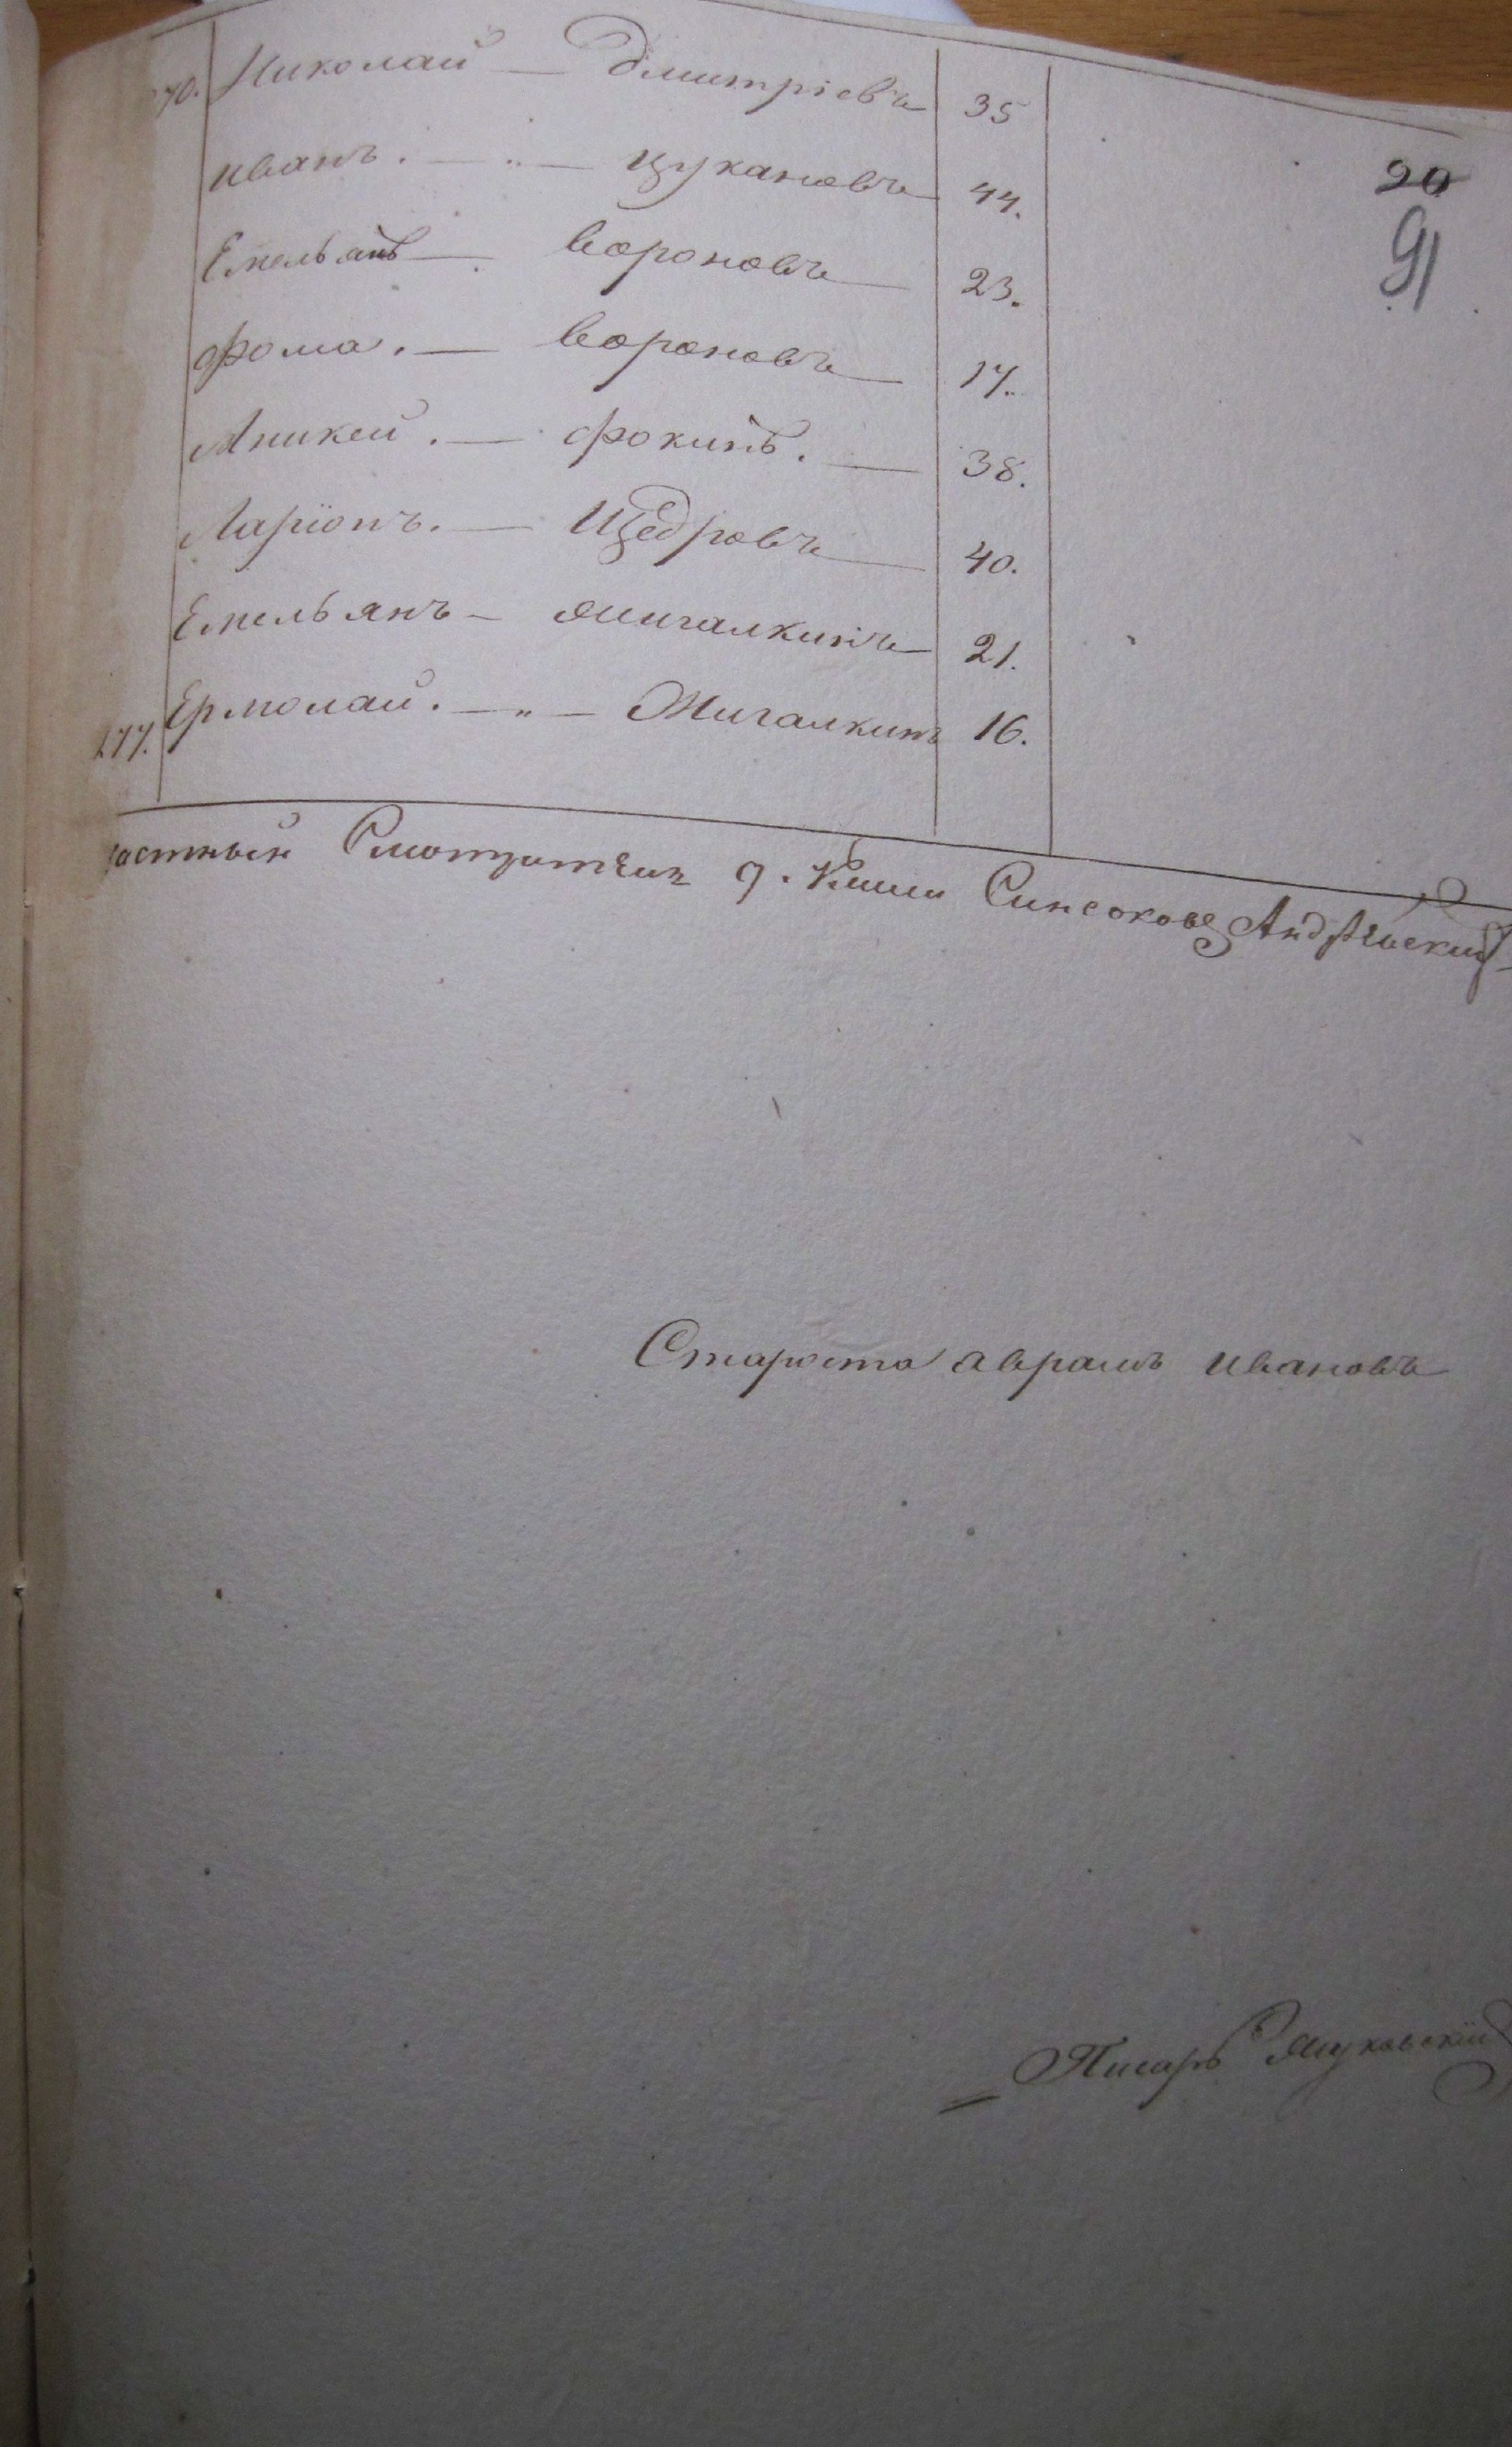 70. Николай — Дмитріевъ 35
90
иванъ. — „ — цукановъ 44.
91
Емельянъ — вороновъ 23.
фома. — вороновъ 17.
Аникей. — фокинъ. — 38.
Ларіонъ. — Щедровъ 40.
Емельянъ — Мигалкинъ 21.
177. Ермолай. — „ — Мигалкинъ 16.
астный Смотритель Андріевскій
Староста аврамъ ивановъ
Писарь